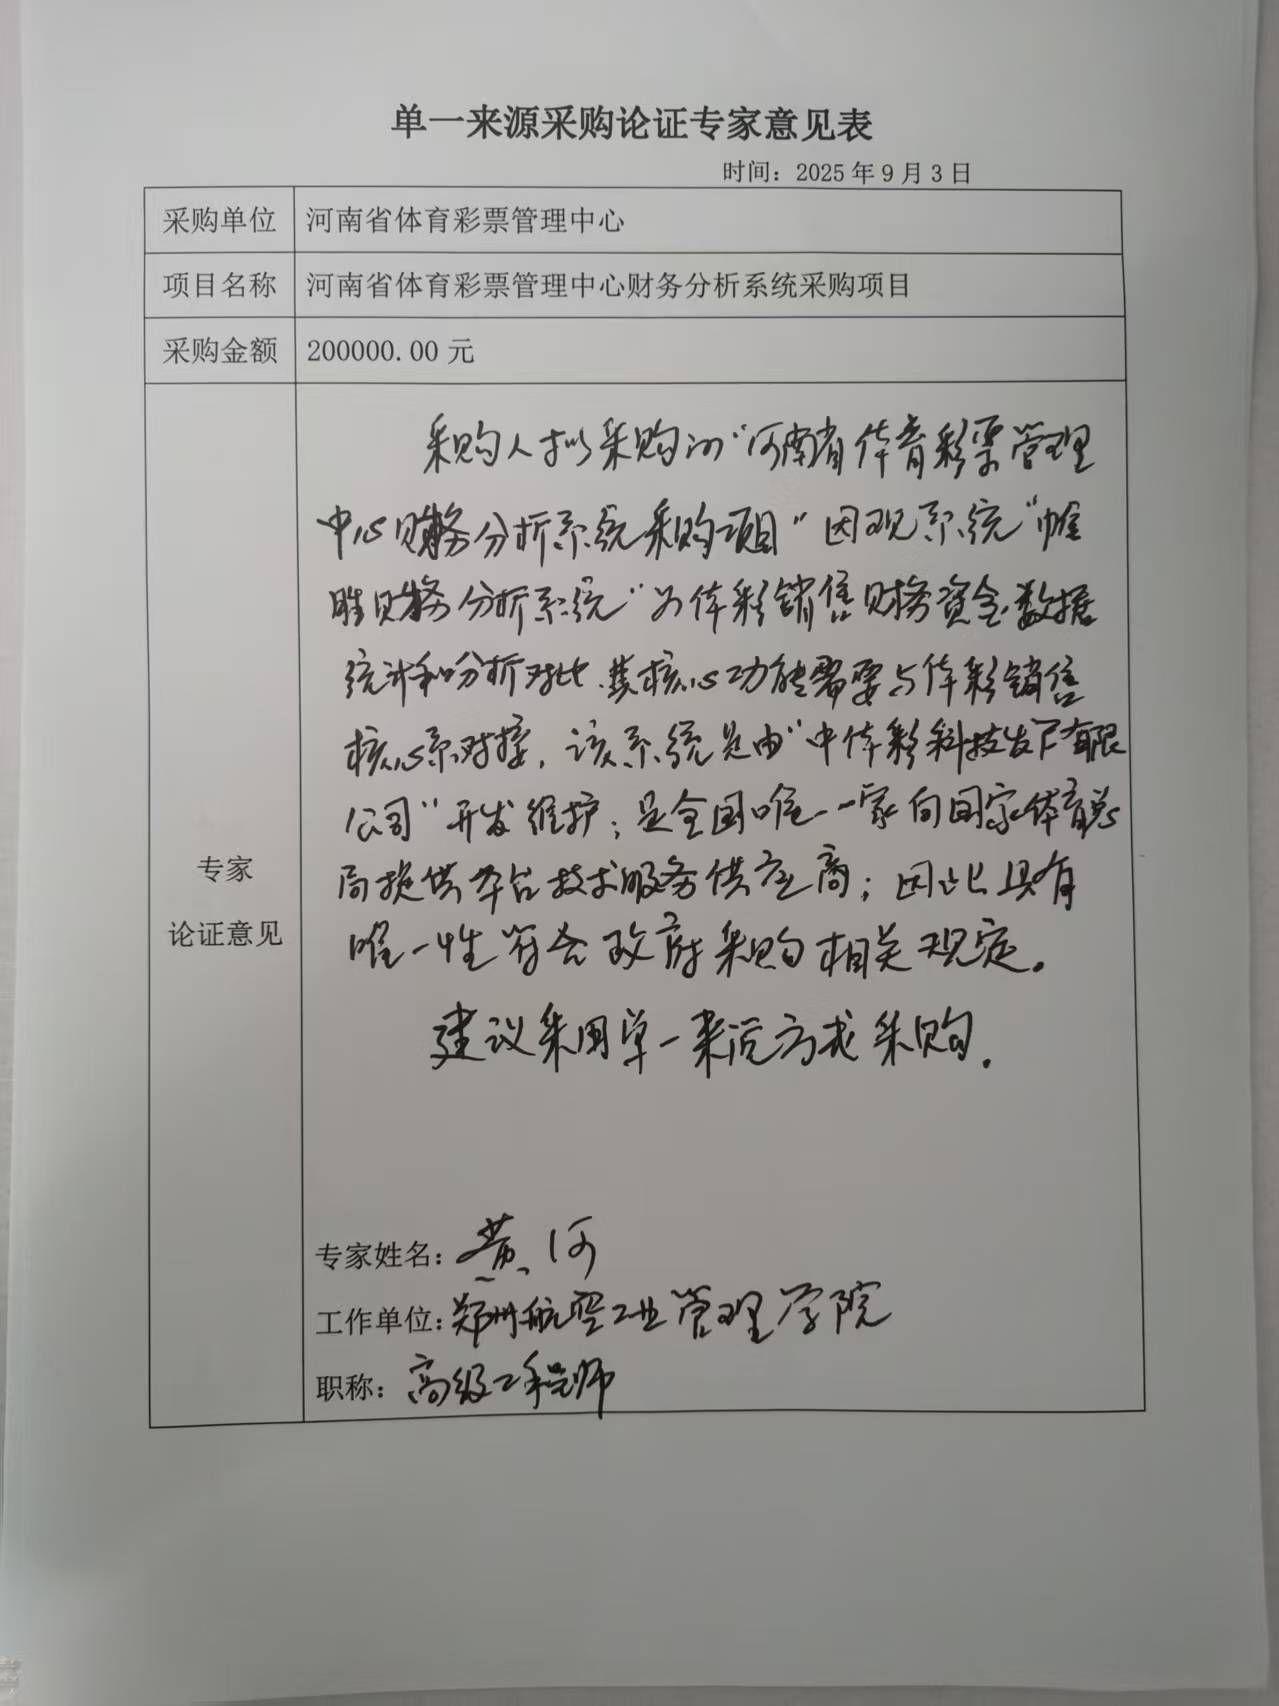 单一来源采购论证专家意见表
时间：2025年9月3日
采购单位 河南省体育彩票管理中心
项目名称 河南省体育彩票管理中心财务分析系统采购项目
采购金额 200000.00元
专家
论证意见
采购人拟采购的“河南省体育彩票管理
中心财务分析系统采购项目”因现系统“
胜财务分析系统”为体彩销售财务资金、数据
统计和分析对比、其核心功能需要与体彩销售
核心系对接，该系统是由“中体彩科技发展有限
公司”开发维护；是全国唯一一家向国家体育总
局提供平台技术服务供应商；因此具有
唯一性符合政府采购相关规定。
建议采用单一来源方式采购。
专家姓名：黄河
工作单位：郑州航空工业管理学院
职称：高级工程师